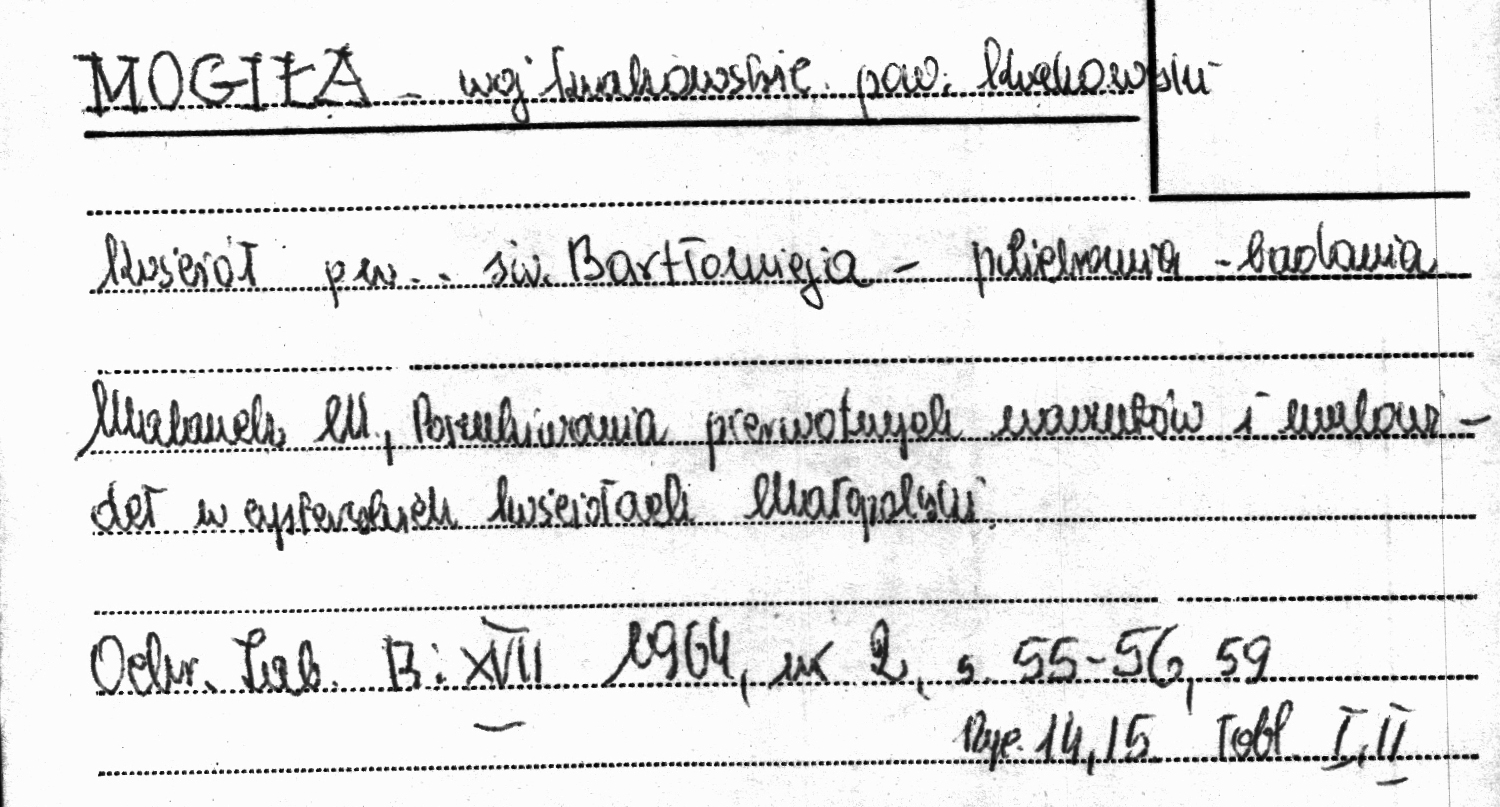 MOGIŁA - woj. krakowskie pow. krakowski
kościół p.w. św. Bartłomieja - polichromia - badania
M., Poszukiwania pierwotnych narzutów i malowi-
deł w cysterskich kościołach Małopolski.
Ochr. Zab. R: XVII 1964, nr 2, s. 55-56, 59
Ryc. 14, 15. Tabl. I, II